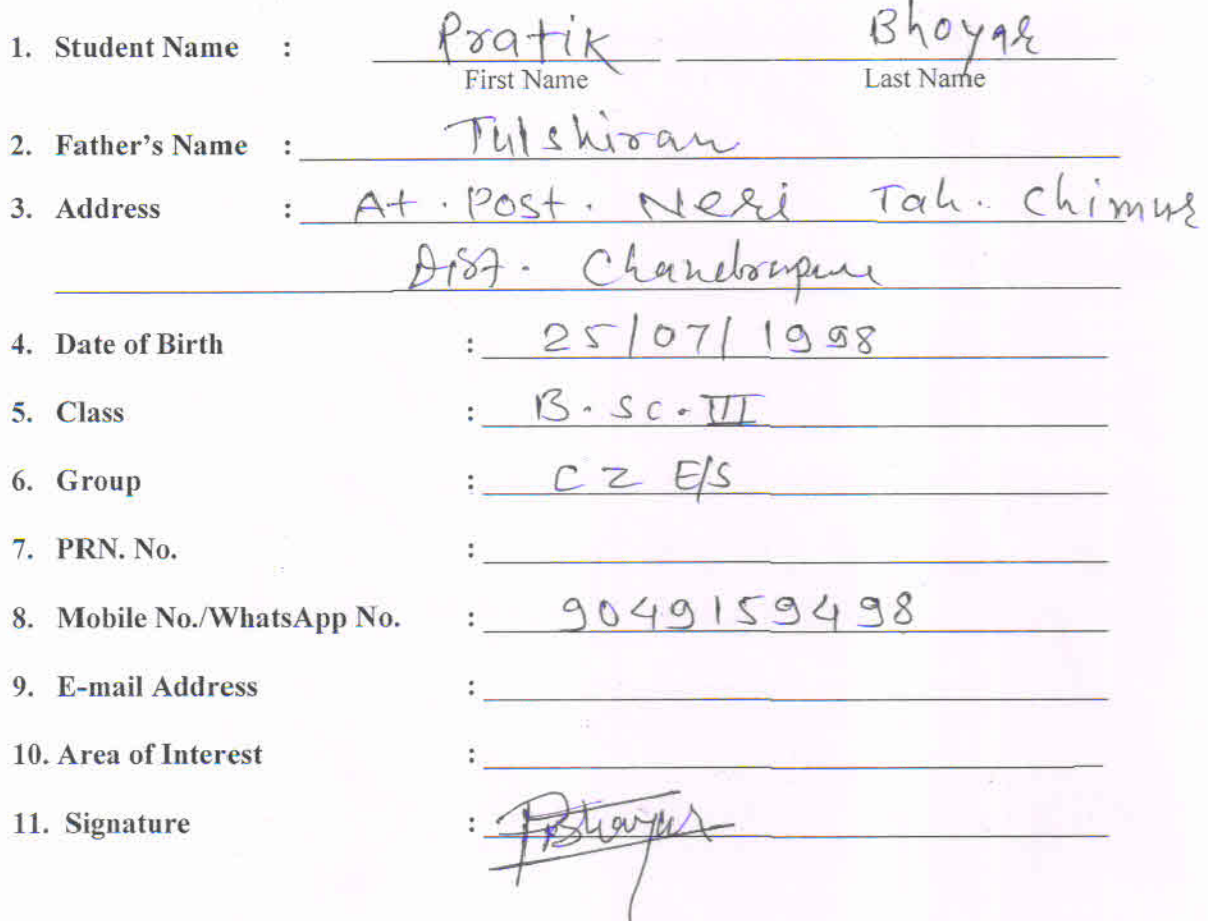 1. Student Name : Pratik Bhoyar
First Name Last Name
2. Father's Name : Tulshiram
3. Address : At. Post. Neri Tah. Chimur
Dist. Chandrapur
4. Date of Birth : 25/07/1998
5. Class : B.Sc.III
6. Group : C Z E/S
7. PRN. No. :
8. Mobile No./WhatsApp No. : 9049159498
9. E-mail Address :
10. Area of Interest :
11. Signature : PBhoyar